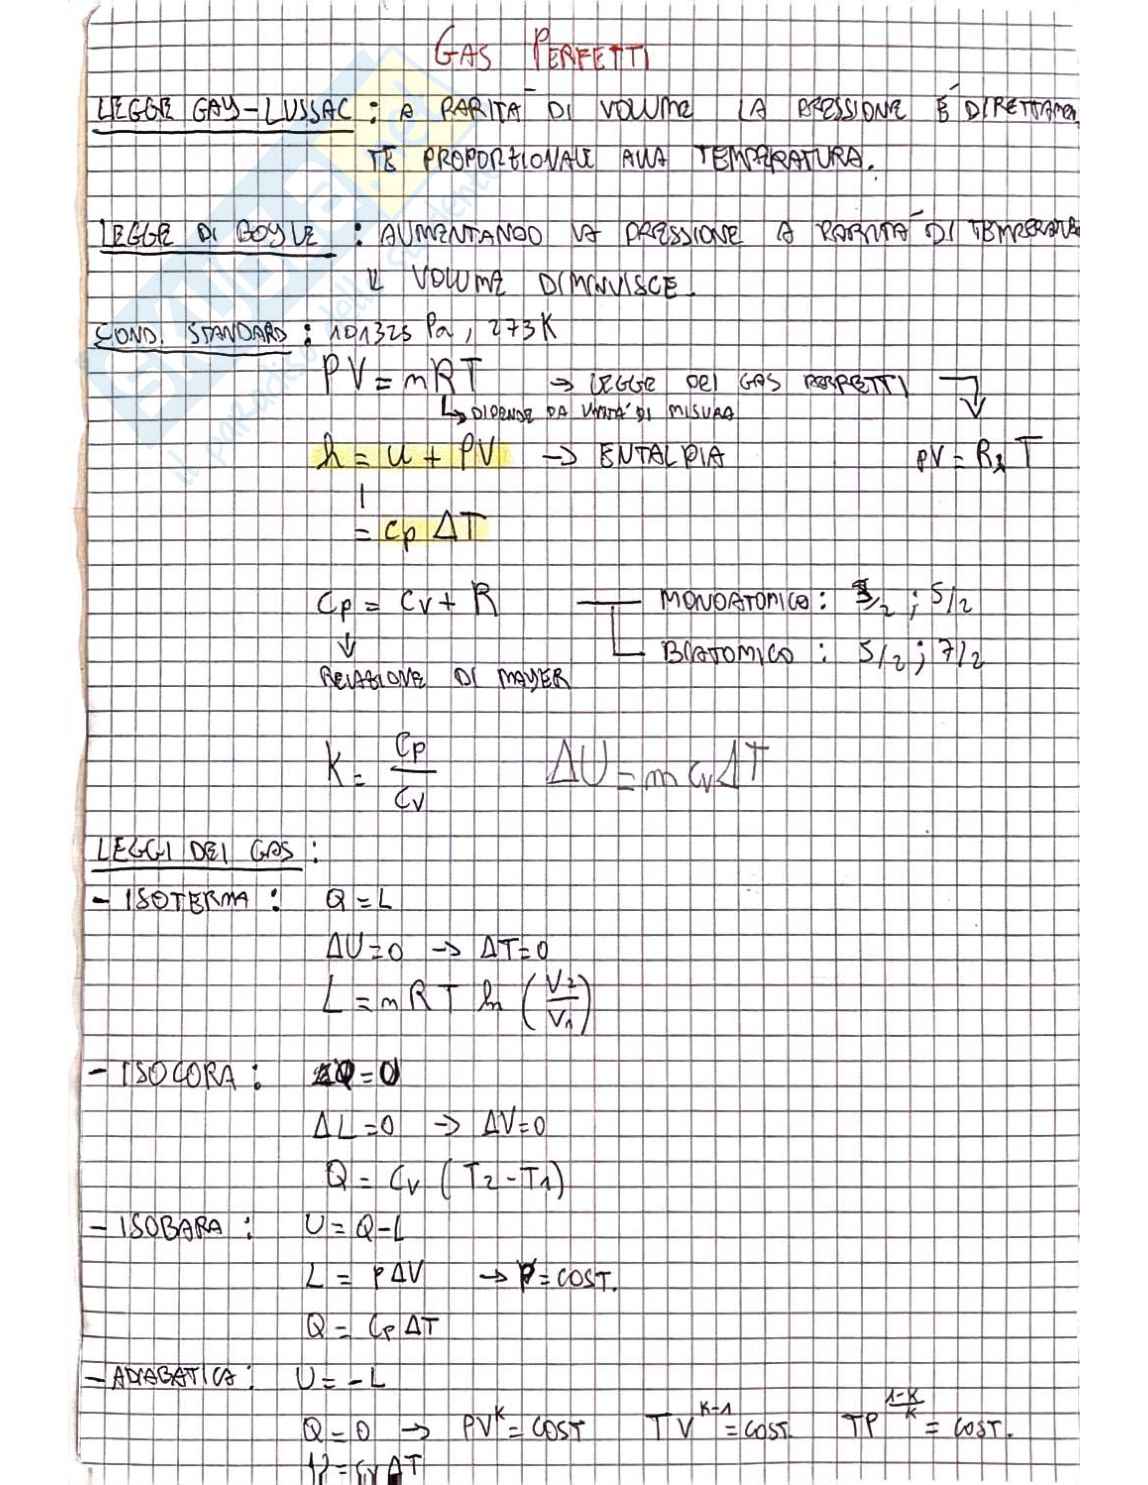 GAS PERFETTI
LEGGE GAY-LUSSAC : A PARITÀ DI VOLUME LA PRESSIONE È DIRETTAMEN
TE PROPORZIONALE ALLA TEMPERATURA.
LEGGE DI BOYLE : AUMENTANDO LA PRESSIONE A PARITÀ DI TEMPERATURA
IL VOLUME DIMINUISCE.
COND. STANDARD : 101325 Pa, 273K
PV = nRT → LEGGE DEI GAS PERFETTI
↳ DIPENDE DA UNITÀ DI MISURA
h = u + PV → ENTALPIA PV = R T
= Cp ΔT
Cp = Cv + R MONOATOMICO : 3/2 ; 5/2
↓ BIATOMICO : 5/2 ; 7/2
RELAZIONE DI MAYER
K = Cp/Cv ΔU = m Cv ΔT
LEGGI DEI GAS :
- ISOTERMA : Q = L
ΔU = 0 → ΔT = 0
L = nRT ln (V2/V1)
- ISOCORA : Q = 0
ΔL = 0 → ΔV = 0
Q = Cv (T2 - T1)
- ISOBARA : U = Q - L
L = PΔV → P = COST.
Q = Cp ΔT
- ADIABATICA : U = - L
Q = 0 → PV^K = COST TV^K-1 = COST. TP^1-K/K = COST.
= Cv ΔT